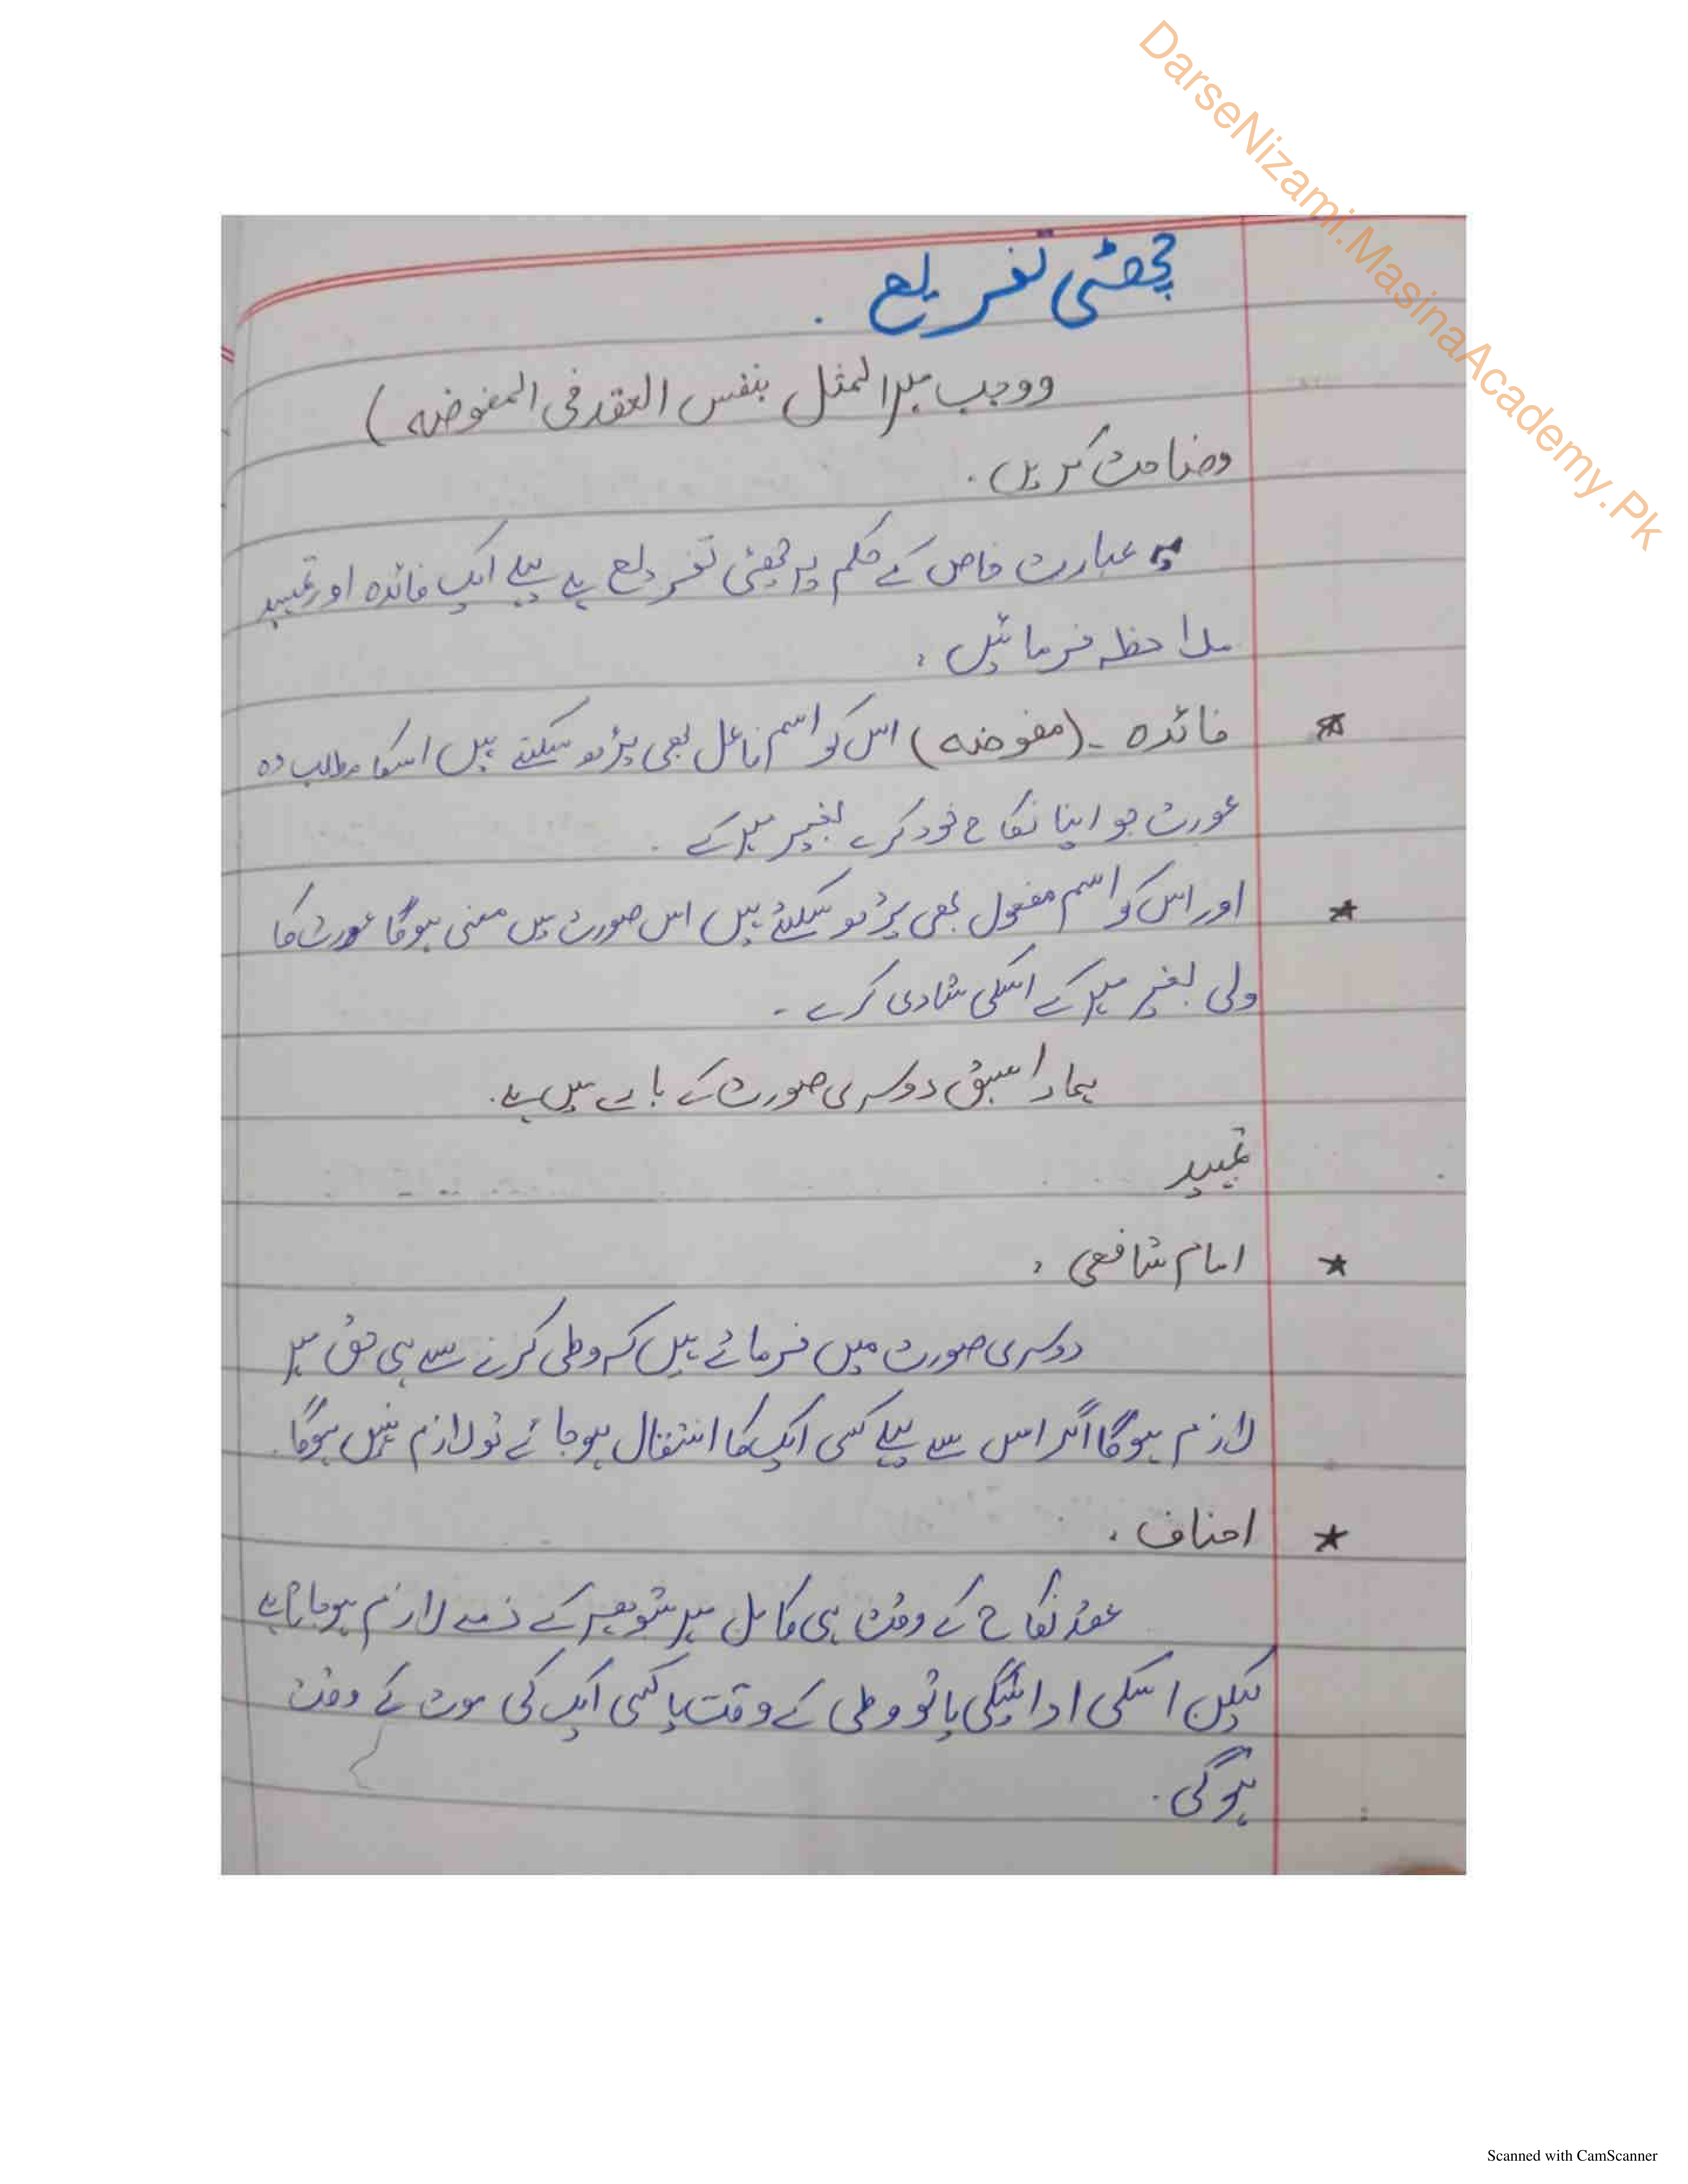 DarseNizami.MasinaAcademy.Pk
چھٹی تفریع .
ووجب مہرالمثل بنفس العقد فی المفوضہ )
وضاحت کریں .
یہ عبارت خاص کے حکم پر چھٹی تفریع ہے پہلے ایک فائدہ اور تمہید
ملاحظہ فرمائیں ,
* فائدہ - (مفوضہ) اس کو اسم فاعل بھی پڑھ سکتے ہیں اسکا مطلب وہ
عورت جو اپنا نکاح خود کرے بغیر مہر کے .
* اور اس کو اسم مفعول بھی پڑھ سکتے ہیں اس صورت میں معنی ہوگا عورت کا
ولی بغیر مہر کے اسکی شادی کرے -
ہمارا سبق دوسری صورت کے بارے میں ہے .
تمہید
* امام شافعی ,
دوسری صورت میں فرماتے ہیں کہ وطی کرنے سے ہی حق مہر
لازم ہوگا اگر اس سے پہلے کسی ایک کا انتقال ہوجائے تو لازم نہیں ہوگا .
* احناف ,
عقد نکاح کے وقت ہی کامل مہر شوہر کے ذمے لازم ہوجاتا ہے
لیکن اسکی ادائیگی یا تو وطی کے وقت یا کسی ایک کی موت کے وقت
ہوگی .
Scanned with CamScanner